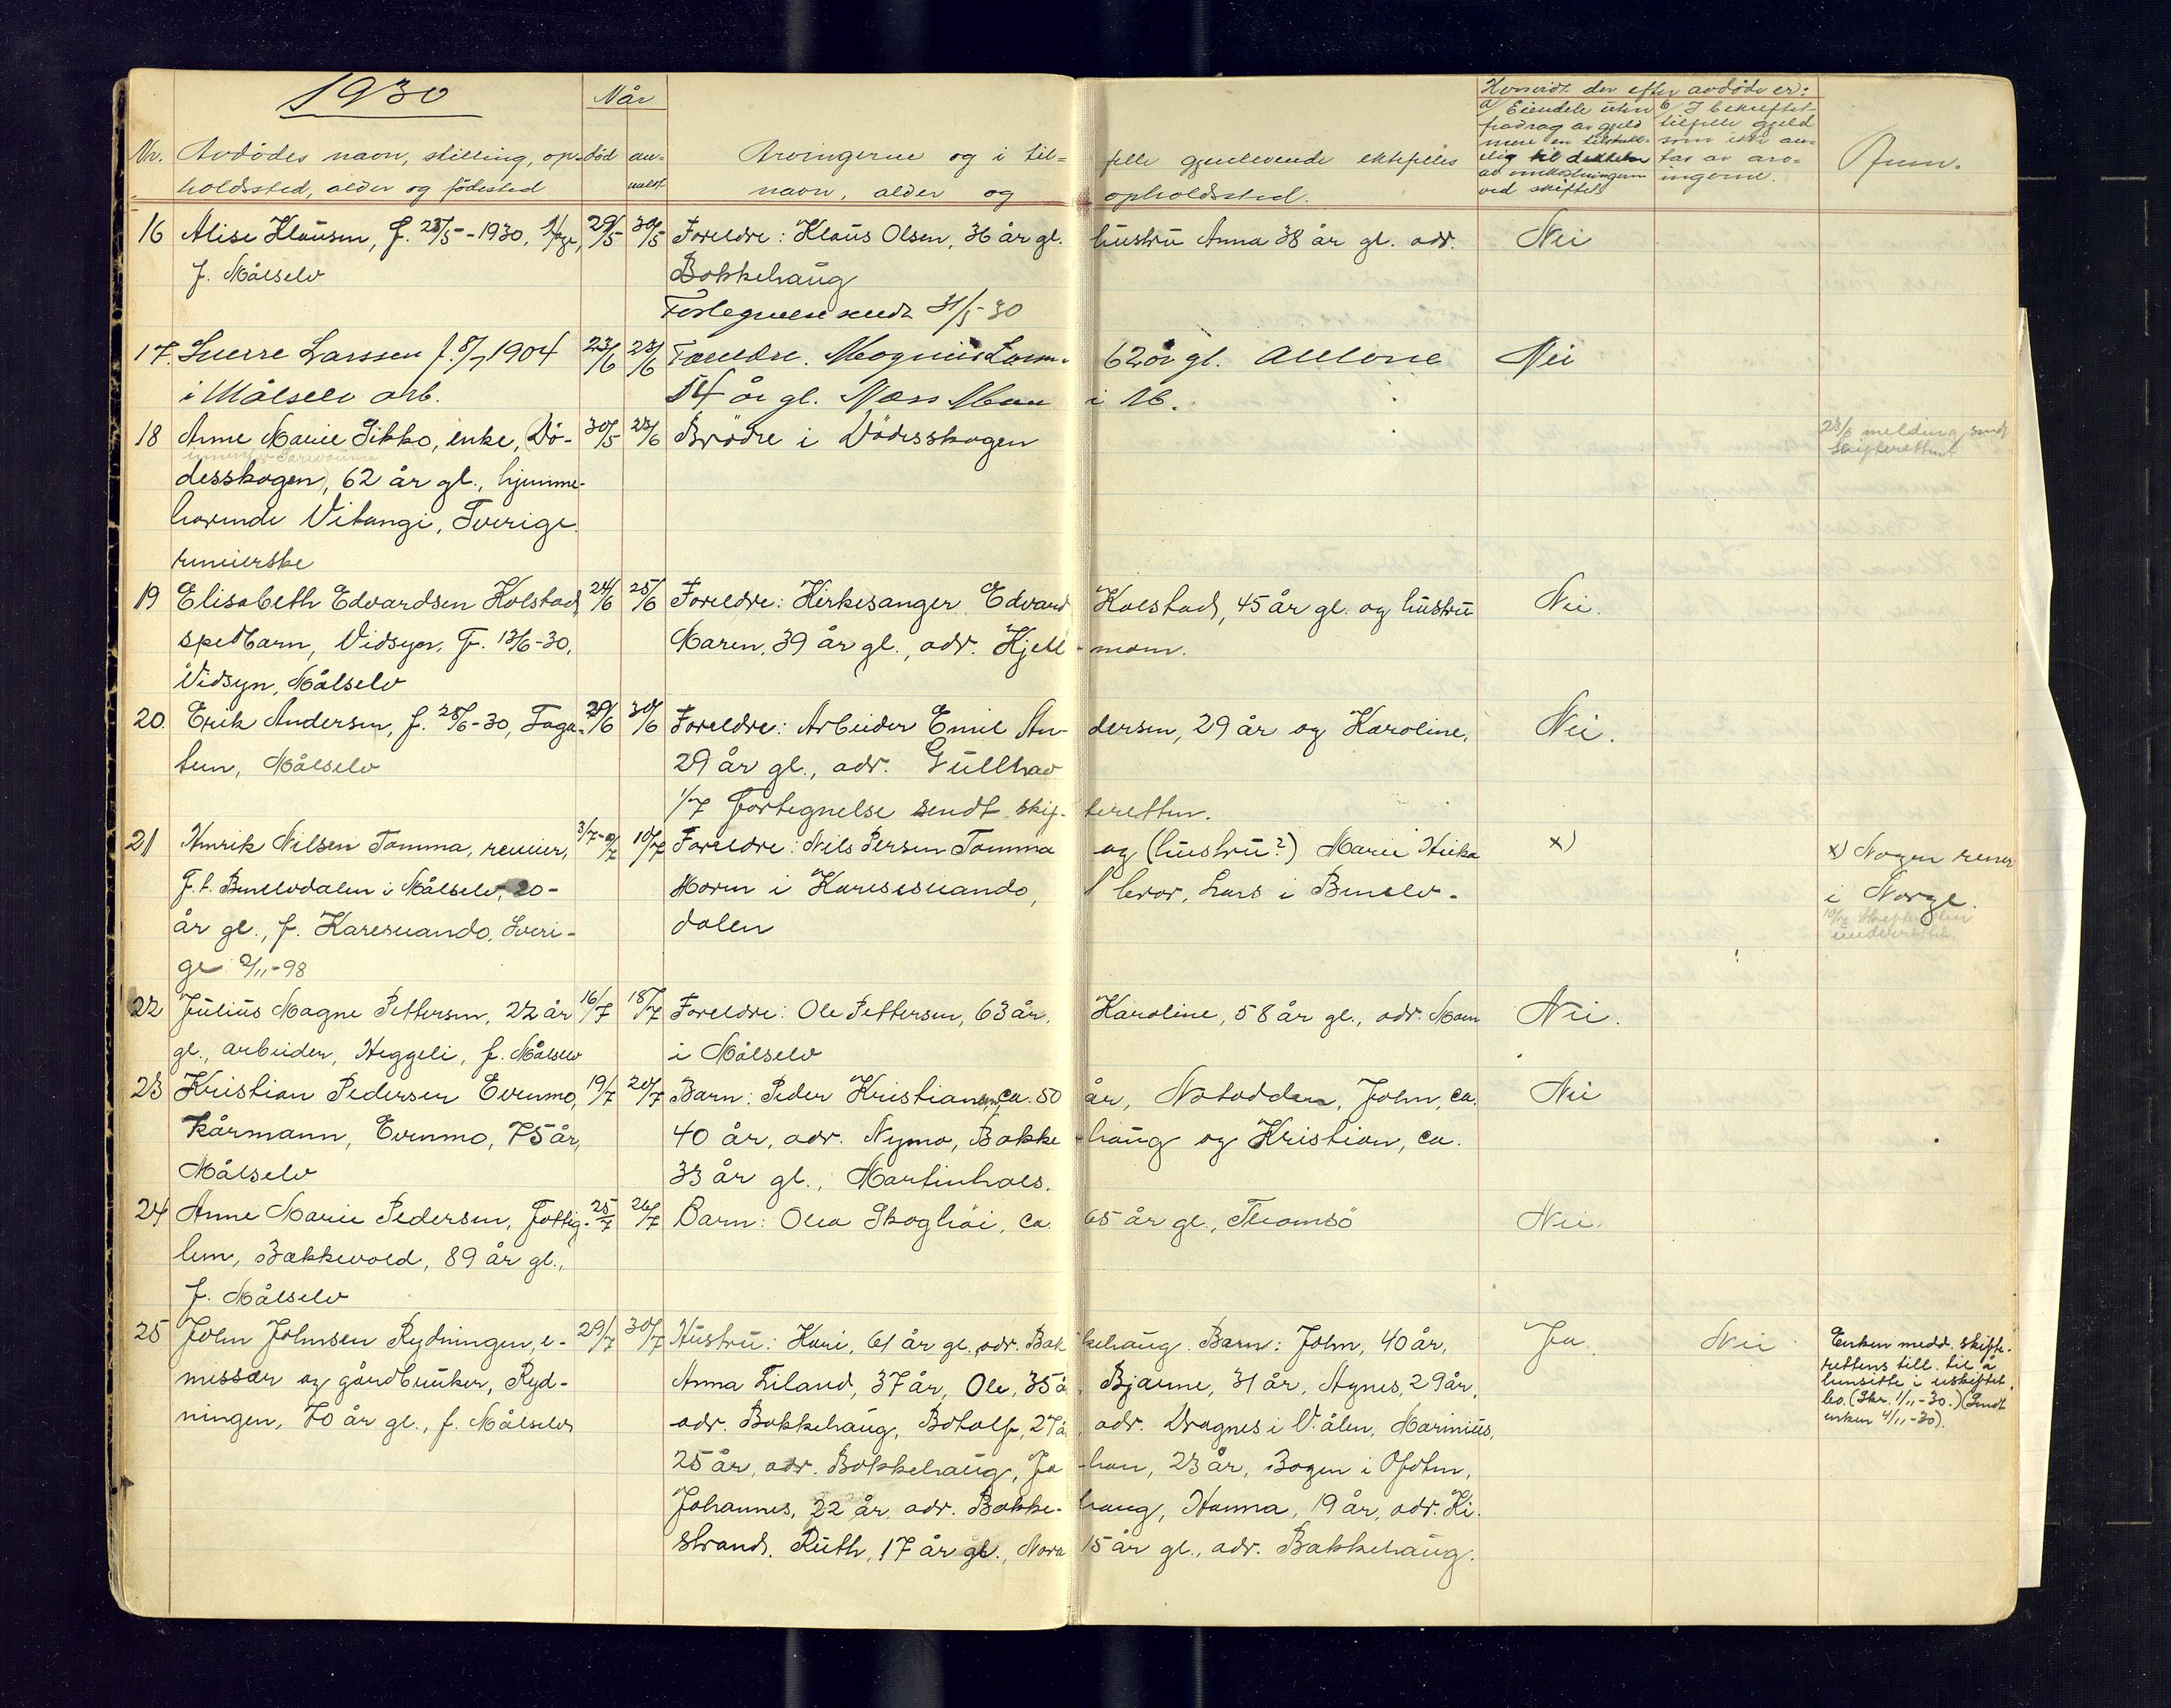 1930
Når
Hvorvidt der efter avdøde er:
Nr. Avdödes navn, stilling, op-
holdssted, alder og födested
död
an-
meldt
Arvingerne og i til-
navn, alder og
felle gjenlevende ektefelles
opholdssted.
a/ Eiendele uten
fradrag av gjeld
mere en tilstrekke-
lig til dekkelse
av omkostningerne
ved skiftet
b/ I bekreftet-
tilfelle gjeld
som ikke an-
tas av arv-
ingerne.
Anm.
16 Alise Klausen, f. 28/5-1930, 29/5 30/5 Foreldre: Klaus Olsen, 36 år gl. hustru Anna 38 år gl. adr. Nei
f. Målselv Bakkehaug
Fortegnelse sendt 31/5-30
17. Sverre Larssen f. 8/7 1904 23/6 23/6 Foreldre. Magnus Larsen 62 år gl. Nei
i Målselv arb. 54 år gl. Næss Moen i M.
18 Anne Marie Sikko, enke, (Dö- 30/5 23/6 Brödre i Dödesskogen 23/6 melding sendt
skifteretten
desskogen), 62 år gl., hjemme-
hörende Vitangi, Sverige.
reneierske
19 Elisabeth Edvardsen Kolstad 24/6 25/6 Foreldre: Kirkesanger Edvard Kolstad, 45 år gl. og hustru Nei.
spedbarn, Vidsyn, f. 13/6-30, Maren, 39 år gl., adr. Kjell-moen.
Vidsyn, Målselv
20. Erik Andersen, f. 28/6-30, Fager- 29/6 30/6 Foreldre: Arbeider Emil An-dersen, 29 år og Karoline, Nei.
Målselv 29 år gl., adr. Gullhav
1/7 Fortegnelse sendt skif-teretten.
21 Henrik Nilsen Tomma, reneier, 3/7 10/7 Foreldre: Nils Persen Tomma og (hustru?) Marie x) x) Nogen rener
f.t. i Målselv, 20- Moren i Karesuando, bror, Lars i i Norge.
år gl., f. Karesuando, Sveri- dalen 10/7 Skifteretten
underrettet.
ge 2/11-98
22 Julius Magne Pettersen, 22 år 16/7 18/7 Foreldre: Ole Pettersen, 63 år, Karoline, 58 år gl., adr. Moen Nei.
gl., arbeider, Heggeli, f. Målselv i Målselv
23 Kristian Pedersen Evenmo, 19/7 20/7 Barn: Peder Kristiansen, ca. 50 år, Notodden, John, ca. Nei
kårmann, Evenmo, 75 år, 40 år, adr. Nymo, Bakke-haug og Kristian, ca.
Målselv 33 år gl., Martinhaes.
24 Anne Marie Pedersen, fattig- 25/7 26/7 Barn: Olea Skoghöi, ca. 65 år gl., Tromsö Nei.
lem, Bakkevold, 89 år gl.,
f. Målselv
25 John Johnsen Rydningen, e- 29/7 30/7 Hustru: Kari, 61 år gl., adr. Bak-kehaug. Barn: John, 40 år, Ja. Nei Enken medd. skifte-
missær og gårdbruker, Ryd- Anna Liland, 37 år, Ole, 35 å, Bjarne, 31 år, Agnes, 29 år, rettens till. til å
hensitte i uskiftet
ningen, 70 år gl., f. Målselv adr. Bakkehaug, Botolf, 27 å, adr. Dragnes i V.ålen, Marinius, bo. (Skr. 1/11-30.) (Sendt
enken 4/11-30).
25 år, adr. Bakkehaug, Jo-han, 23 år, Bogen i Ofoten,
Johannes, 22 år, adr. Bakke-haug, Hanna, 19 år, adr. Ki-
strand. Ruth, 17 år gl., Nora 15 år gl., adr. Bakkehaug.